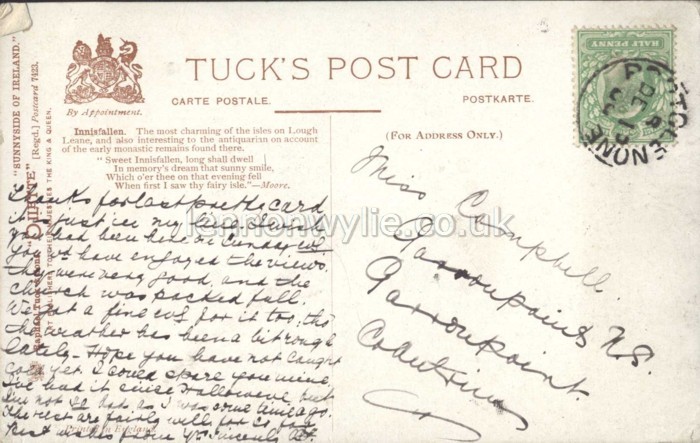 "SUNNYSIDE OF IRELAND."
"OILETTE" [Regd.] Postcard 7423.
TUCK'S POST CARD
CARTE POSTALE. POSTKARTE.
By Appointment.
Innisfallen. The most charming of the isles on Lough
Leane, and also interesting to the antiquarian on account
of the early monastic remains found there.
"Sweet Innisfallen, long shall dwell
In memory's dream that sunny smile,
Which o'er thee on that evening fell
When first I saw thy fairy isle."—Moore.
(FOR ADDRESS ONLY.)
HALF PENNY
PORTGLENONE
DE 1
Thanks for last p the card
it is just in my line. I wish
you had been here on Sunday evg
you wd have enjoyed the views.
They were very good, and the
church was packed full.
We got a fine evg for it too, tho'
the weather has been a bit rough
lately - Hope you have not caught
cold yet. I could spare you mine,
I've had it since Halloweve, but
I'm not so bad as I was some time ago.
The rest are fairly well, for so far
Best wishes from
Miss Campbell
Garronpoint N.S.
Garronpoint
Co Antrim
Printed in England.
lennonwylie.co.uk